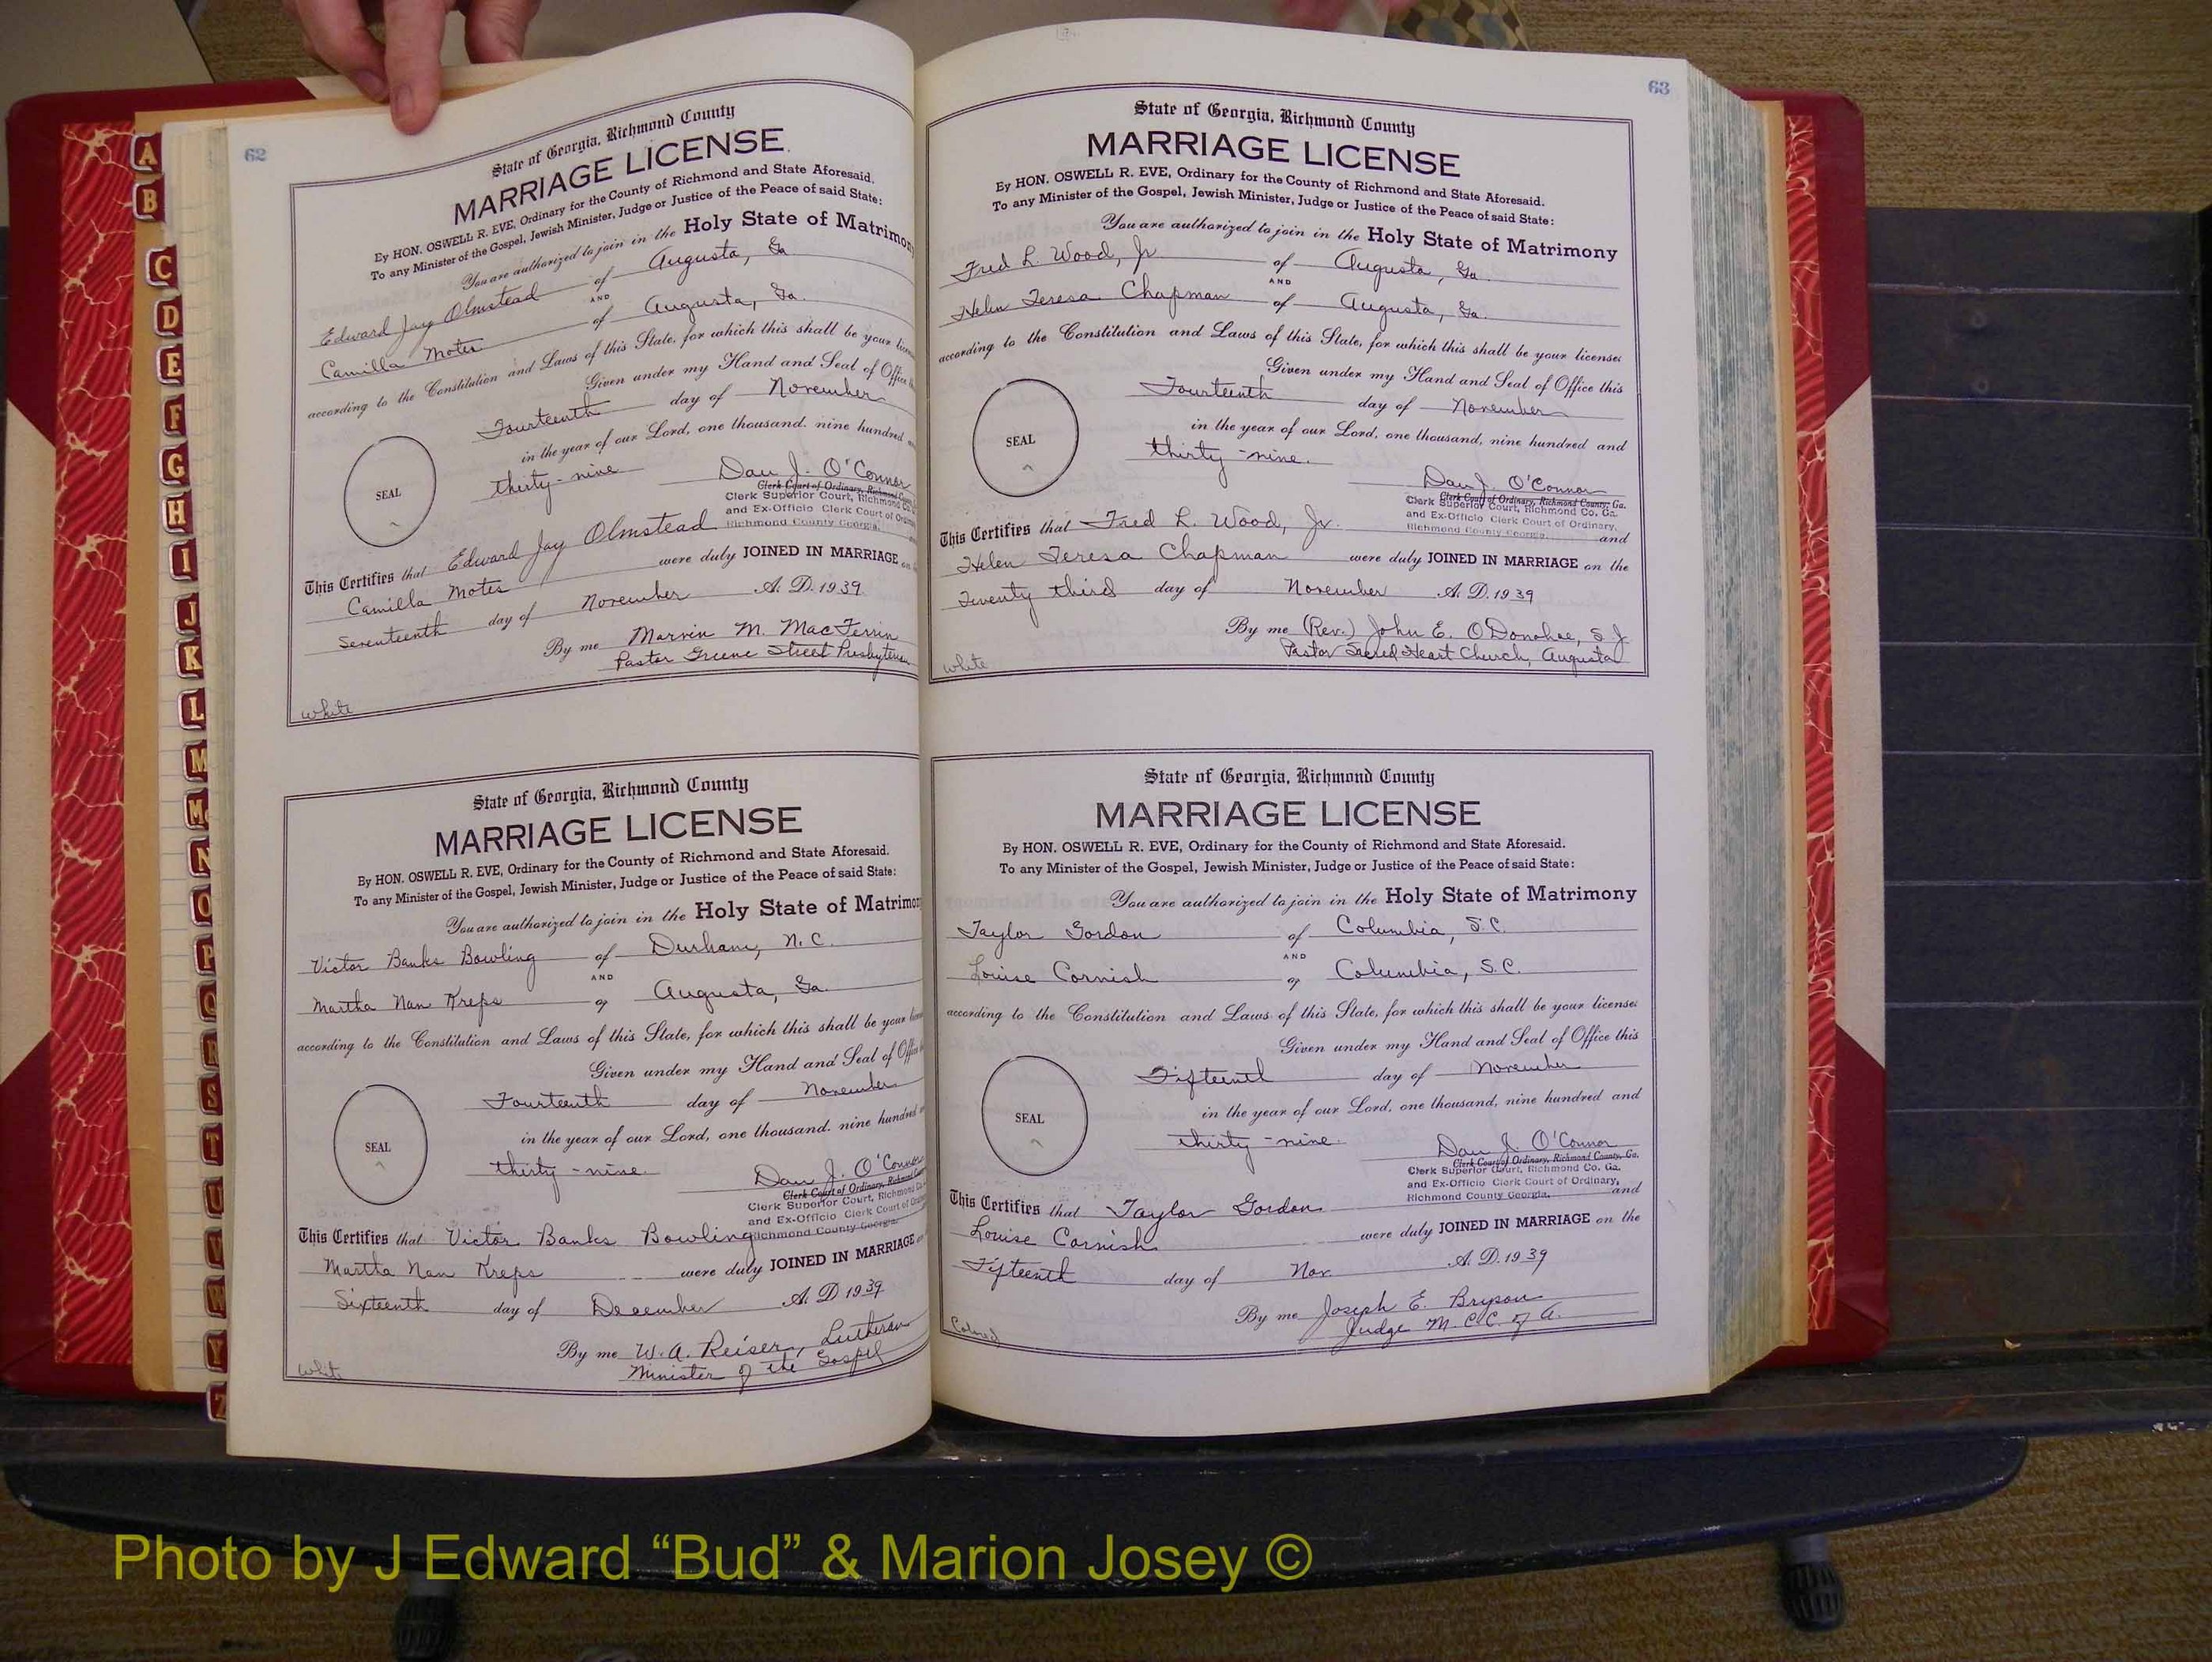 62
State of Georgia, Richmond County
MARRIAGE LICENSE.
By HON. OSWELL R. EVE, Ordinary for the County of Richmond and State Aforesaid.
To any Minister of the Gospel, Jewish Minister, Judge or Justice of the Peace of said State:
You are authorized to join in the Holy State of Matrimony
Edward Jay Olmstead of Augusta, Ga
AND
Camilla Motes of Augusta, Ga.
according to the Constitution and Laws of this State, for which this shall be your
Given under my Hand and Seal of Office
Fourteenth day of November
in the year of our Lord, one thousand. nine hundred
thirty-nine
SEAL
Dan J. O'Connor
Clerk Court of Ordinary, Richmond
Clerk Superior Court, Richmond
and Ex-Officio Clerk Court of
Richmond County Georgia.
This Certifies that Edward Jay Olmstead
Camilla Motes were duly JOINED IN MARRIAGE
Seventeenth day of November A. D. 1939
By me Marvin M. MacFerrin
Pastor Greene Street Presbyterian
White
State of Georgia, Richmond County
MARRIAGE LICENSE
By HON. OSWELL R. EVE, Ordinary for the County of Richmond and State Aforesaid.
To any Minister of the Gospel, Jewish Minister, Judge or Justice of the Peace of said State:
You are authorized to join in the Holy State of Matrimony
Victor Banks Bowling of Durham, N.C.
AND
Martha Nan Kreps of Augusta, Ga.
according to the Constitution and Laws of this State, for which this shall be your
Given under my Hand and Seal of Office
Fourteenth day of November
in the year of our Lord, one thousand. nine hundred
thirty-nine.
SEAL
Dan J. O'Connor
Clerk Court of Ordinary, Richmond
Clerk Superior Court, Richmond
and Ex-Officio Clerk Court of
Richmond County Georgia.
This Certifies that Victor Banks Bowling
Martha Nan Kreps were duly JOINED IN MARRIAGE
Sixteenth day of December A. D 1939
By me W. A. Reiser, Lutheran
Minister of the Gospel
White
63
State of Georgia, Richmond County
MARRIAGE LICENSE
By HON. OSWELL R. EVE, Ordinary for the County of Richmond and State Aforesaid.
To any Minister of the Gospel, Jewish Minister, Judge or Justice of the Peace of said State:
You are authorized to join in the Holy State of Matrimony
Fred L. Wood, Jr. of Augusta, Ga.
AND
Helen Teresa Chapman of Augusta, Ga.
according to the Constitution and Laws of this State, for which this shall be your license:
Given under my Hand and Seal of Office this
Fourteenth day of November
in the year of our Lord, one thousand, nine hundred and
thirty-nine.
SEAL
Dan J. O'Connor
Clerk Court of Ordinary, Richmond County, Ga.
Clerk Superior Court, Richmond Co. Ga.
and Ex-Officio Clerk Court of Ordinary,
Richmond County Georgia.
This Certifies that Fred L. Wood, Jr. and
Helen Teresa Chapman were duly JOINED IN MARRIAGE on the
Twenty third day of November A. D. 1939
By me (Rev.) John E. O'Donohoe, S.J.
Pastor Sacred Heart Church, Augusta
White
State of Georgia, Richmond County
MARRIAGE LICENSE
By HON. OSWELL R. EVE, Ordinary for the County of Richmond and State Aforesaid.
To any Minister of the Gospel, Jewish Minister, Judge or Justice of the Peace of said State:
You are authorized to join in the Holy State of Matrimony
Taylor Gordon of Columbia, S.C.
AND
Louise Cornish of Columbia, S.C.
according to the Constitution and Laws of this State, for which this shall be your license:
Given under my Hand and Seal of Office this
Fifteenth day of November
in the year of our Lord, one thousand, nine hundred and
thirty-nine.
SEAL
Dan J. O'Connor
Clerk Court of Ordinary, Richmond County, Ga.
Clerk Superior Court, Richmond Co. Ga.
and Ex-Officio Clerk Court of Ordinary,
Richmond County Georgia.
This Certifies that Taylor Gordon and
Louise Cornish were duly JOINED IN MARRIAGE on the
Fifteenth day of Nov. A. D. 1939
By me Joseph E. Bryson
Judge M. C. C. of A.
Colored
A
B
C
D
E
F
G
H
I
J
K
L
M
Mc
N
O
P
Q
R
S
T
U
V
W
Y
Z
Photo by J Edward “Bud” & Marion Josey ©